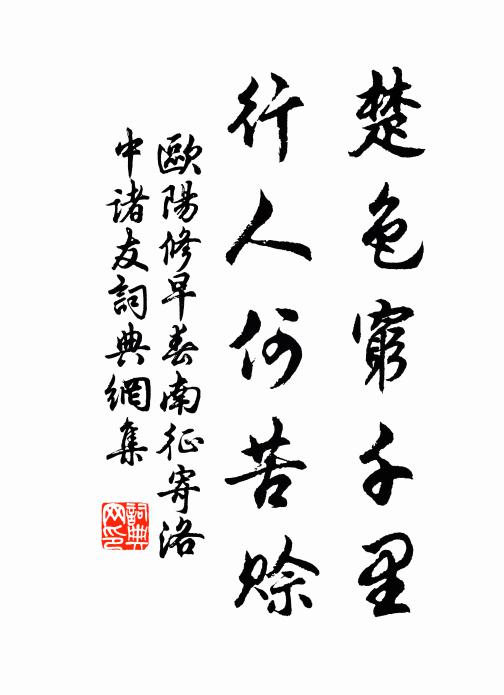 楚色窮千里
行人何苦賒
歐陽修早春南征寄洛
中諸友詞典網集
詞典
网印